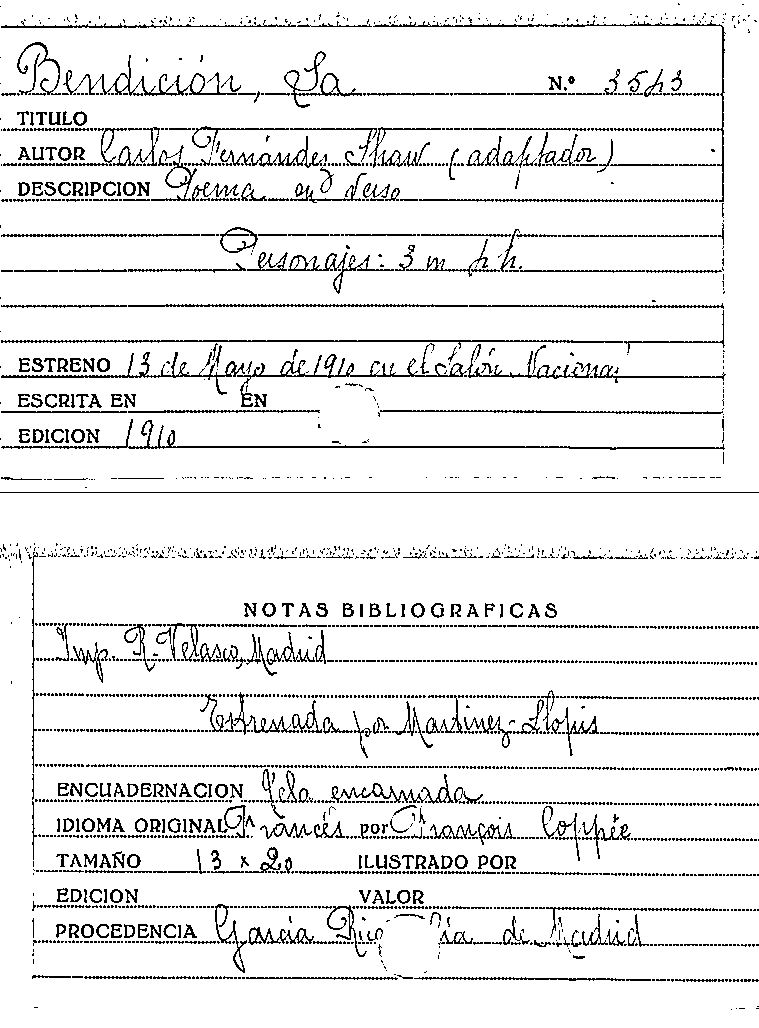 Bendición, La N.º 3543
TITULO
AUTOR Carlos Fernández Shaw (adaptador)
DESCRIPCION Poema en verso
Personajes: 3 m 4 h.
ESTRENO 13 de Mayo de 1910 en el Salón Nacional
ESCRITA EN EN
EDICION 1910
NOTAS BIBLIOGRAFICAS
Imp. R. Velasco, Madrid
Estrenada por Martínez-Llopis
ENCUADERNACION Tela encarnada
IDIOMA ORIGINAL Francés por François Coppée
TAMAÑO 13 x 20 ILUSTRADO POR
EDICION VALOR
PROCEDENCIA García Rico de Madrid